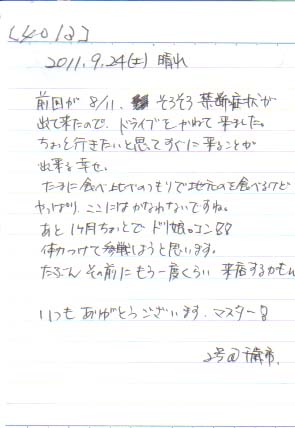 [4018]
2011.9.24(土) 晴れ
前回が 8/11. そろそろ禁断症状が
出て来たので、ドライブをかねて来ました。
ちょっと行きたいと思ってすぐに来ることが
出来る幸せ。
たまに食べ比べのつもりで地元のを食べるけど
やっぱり、ここにはかなわないですね。
あと1ヶ月ちょっとでドリ娘。コン
体力つけて参戦しようと思います。
たぶんその前にもう一度くらい 来店するかも
いつも ありがとうございます、マスター
2号@千歳市.